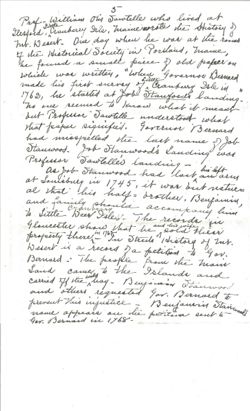 5
Prof. William Otis Sawtelle who lived at
Islesford, Cranberry Isle, Maine wrote the History of
Mt. Desert. One day when he was at the rooms
of the Historical Society in Portland, Maine,
he found a small piece of old paper on
which was written, "When Governor Bernard
made his first survey of Cranberry Isle in
1762, he visited at Job Stanfords landing."
No one seemed to know what it meant
but Professor Sawtelle understood what
that paper signified. Governor Bernard
had misspelled the last name of Job
Stanwood. Job Stanwood's landing was
Professor Sawtelle's landing -
As Job Stanwood had lost his left arm
at Louisburg in 1745, it was but natural
that his half-brother, Benjamin,
and family should accompany him
to Little Deer Isle. The records in
Gloucester show that he and his wife sold their
property there - In Streets History of Mt.
Desert is a record of a petition to Gov.
Bernard - The people from the main
land came to the Islands and
carried off the hay - Benjamin Stanwood
and others requested Gov. Bernard to
prevent this injustice - Benjamin Stanwoods
name appears on the petition sent to
Gov. Bernard in 1768.